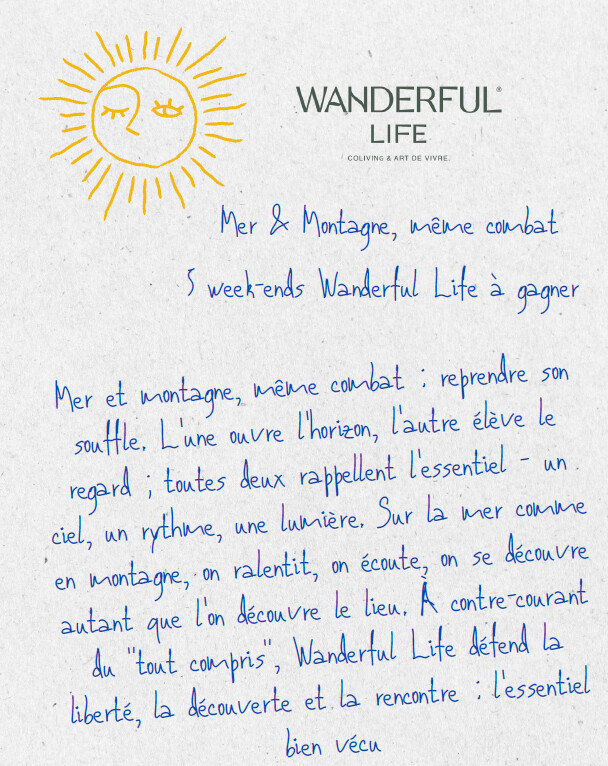 WANDERFUL®
LIFE
COLIVING & ART DE VIVRE.
Mer & Montagne, même combat
5 week-ends Wanderful Life à gagner
Mer et montagne, même combat : reprendre son
souffle. L'une ouvre l'horizon, l'autre élève le
regard ; toutes deux rappellent l'essentiel - un
ciel, un rythme, une lumière. Sur la mer comme
en montagne, on ralentit, on écoute, on se découvre
autant que l'on découvre le lieu. À contre-courant
du "tout compris", Wanderful Life défend la
liberté, la découverte et la rencontre : l'essentiel
bien vécu